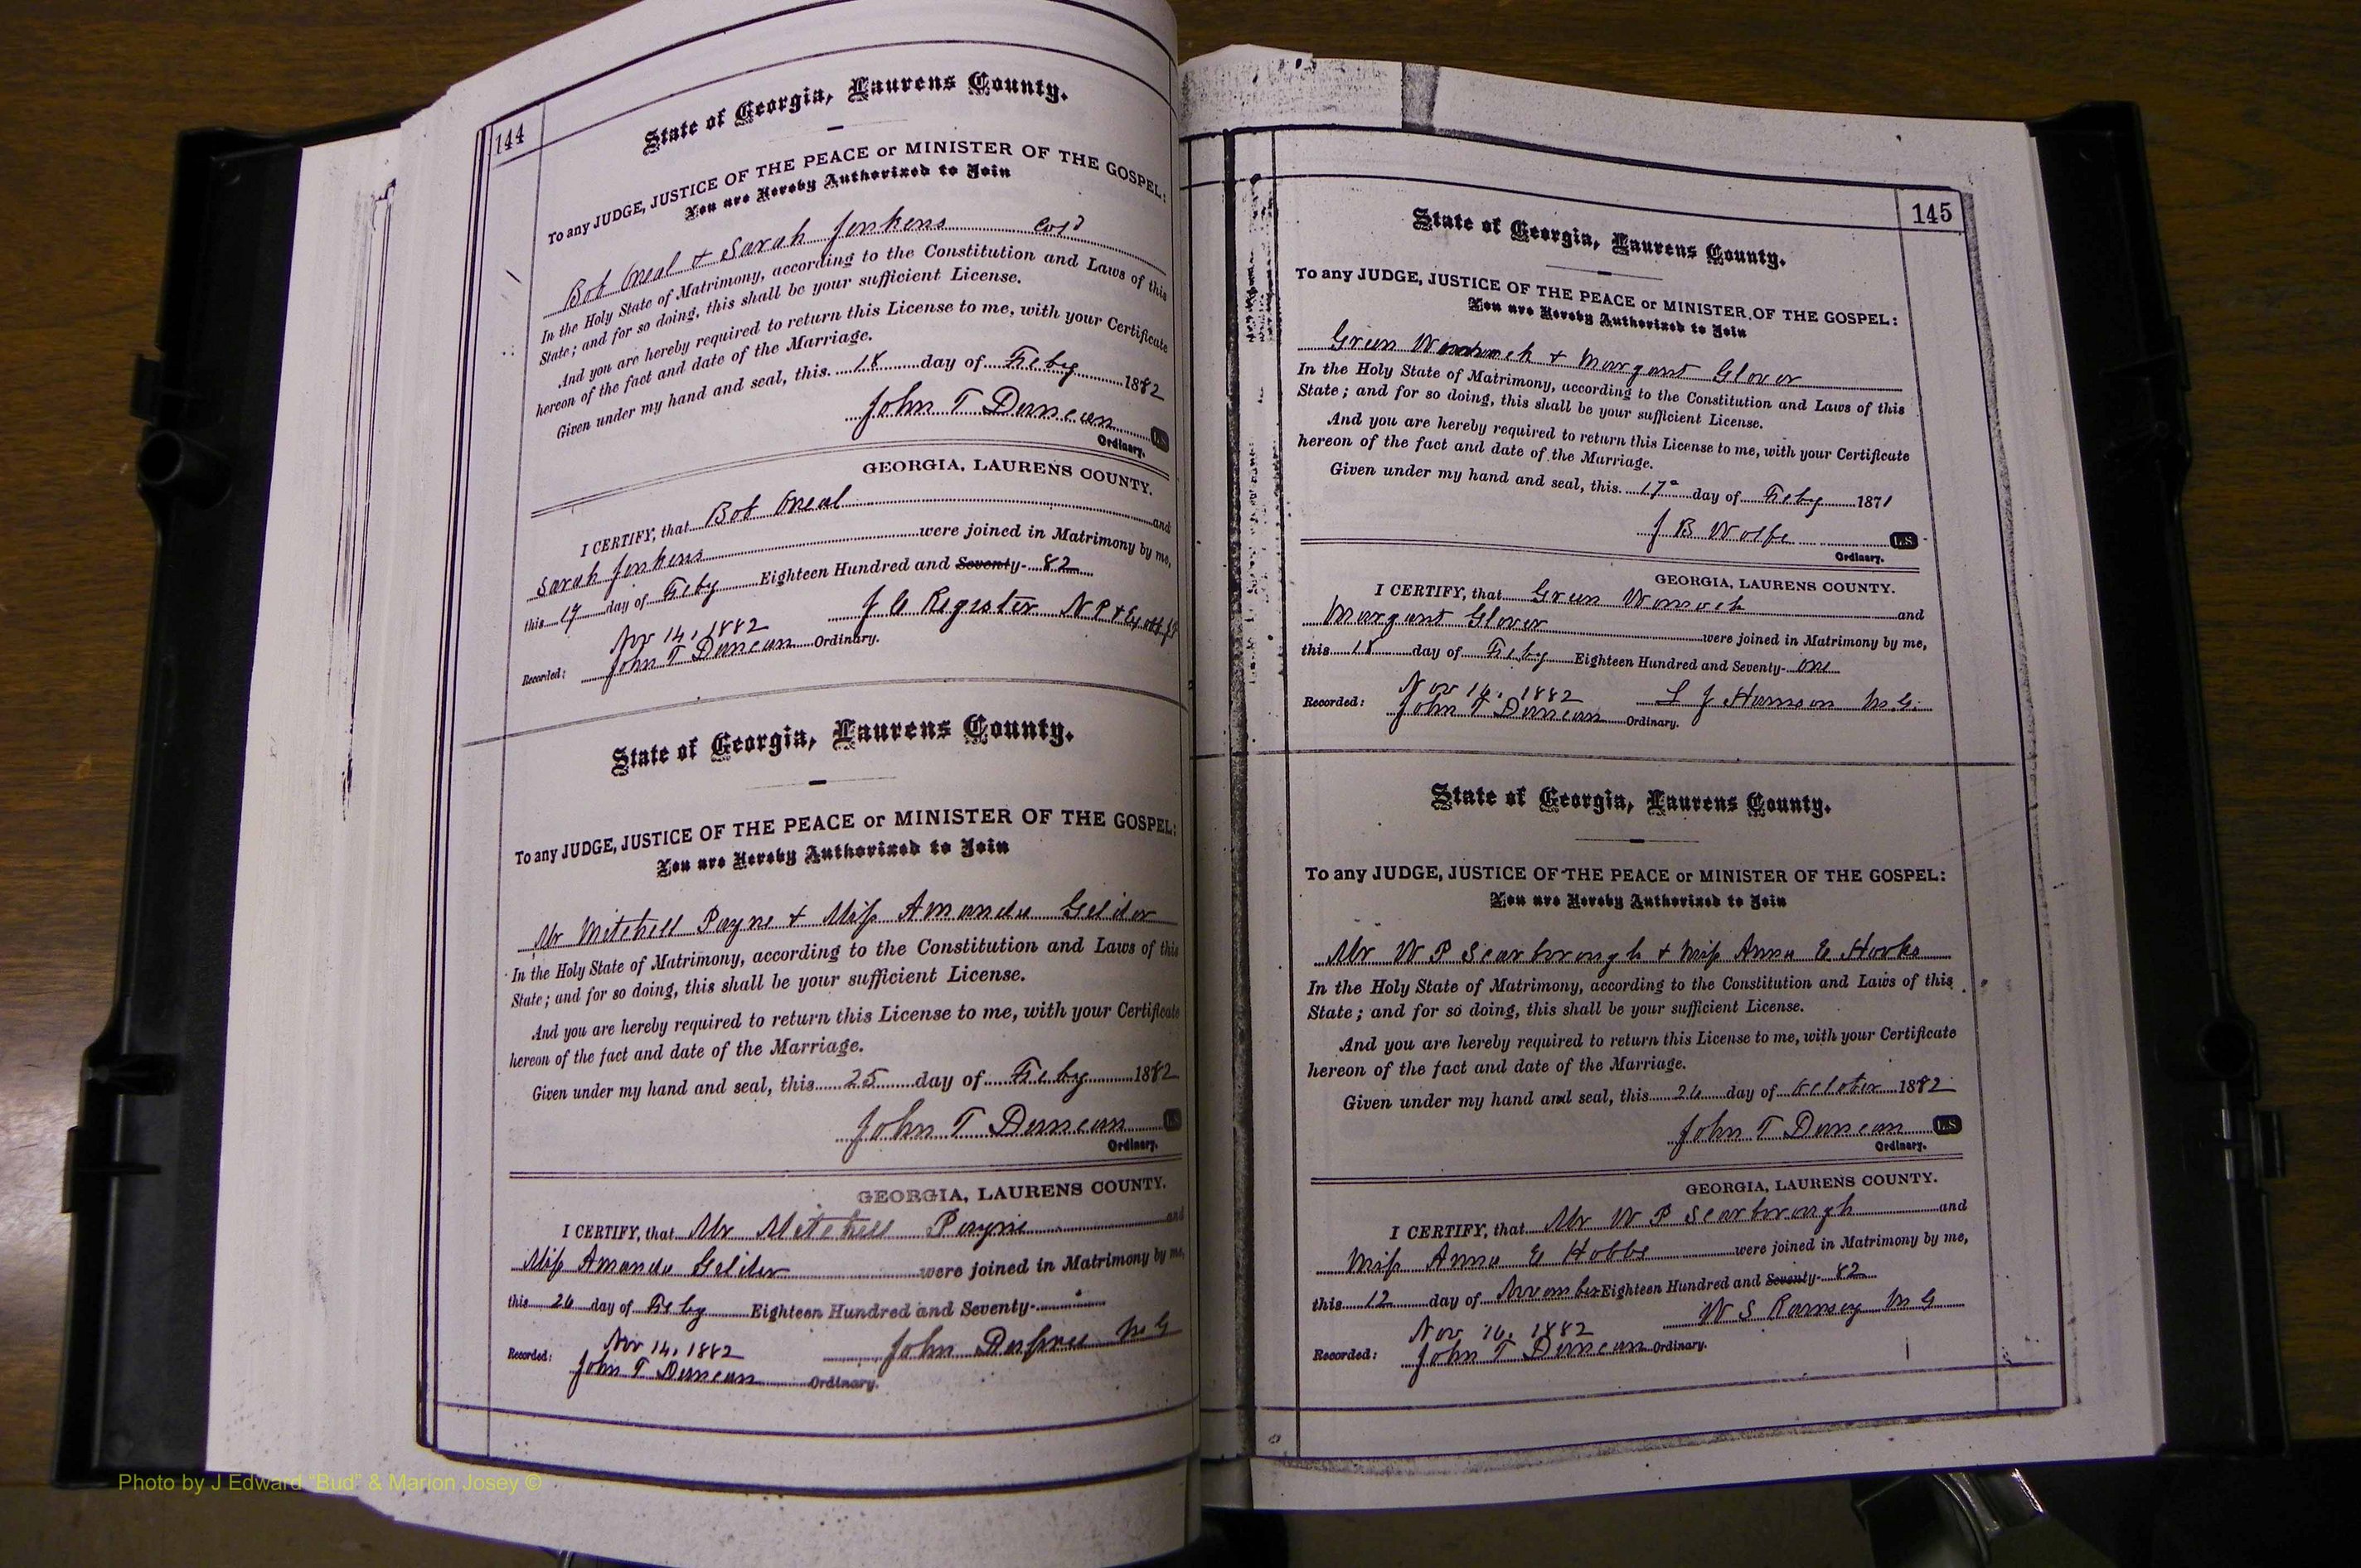 144
State of Georgia, Laurens County.
To any JUDGE, JUSTICE OF THE PEACE or MINISTER OF THE GOSPEL:
You are Hereby Authorized to Join
Bob Oneal & Sarah Jenkens Col'd
In the Holy State of Matrimony, according to the Constitution and Laws of this
State; and for so doing, this shall be your sufficient License.
And you are hereby required to return this License to me, with your Certificate
hereon of the fact and date of the Marriage.
Given under my hand and seal, this 18 day of Feby 1882
John T Duncan L.S
Ordinary.
GEORGIA, LAURENS COUNTY.
I CERTIFY, that Bob Oneal and
Sarah Jenkens were joined in Matrimony by me,
this 19 day of Feby Eighteen Hundred and Seventy- 82
J C Register N P & Ex off JP
Nov 14, 1882
Recorded: John T Duncan Ordinary.
State of Georgia, Laurens County.
To any JUDGE, JUSTICE OF THE PEACE or MINISTER OF THE GOSPEL:
You are Hereby Authorized to Join
Mr Mitchell Payne & Miss Amanda
In the Holy State of Matrimony, according to the Constitution and Laws of this
State; and for so doing, this shall be your sufficient License.
And you are hereby required to return this License to me, with your Certificate
hereon of the fact and date of the Marriage.
Given under my hand and seal, this 25 day of Feby 1882
John T Duncan L.S
Ordinary.
GEORGIA, LAURENS COUNTY.
I CERTIFY, that Mr Mitchell Payne and
Miss Amanda were joined in Matrimony by me,
this 26 day of Feby Eighteen Hundred and Seventy-
John Dupree M G
Nov 14, 1882
Recorded: John T Duncan Ordinary.
145
State of Georgia, Laurens County.
To any JUDGE, JUSTICE OF THE PEACE or MINISTER OF THE GOSPEL:
You are Hereby Authorized to Join
Green Wommack & Margaret Glover
In the Holy State of Matrimony, according to the Constitution and Laws of this
State; and for so doing, this shall be your sufficient License.
And you are hereby required to return this License to me, with your Certificate
hereon of the fact and date of the Marriage.
Given under my hand and seal, this 17 day of Feby 1871
J B Wolfe L.S
Ordinary.
GEORGIA, LAURENS COUNTY.
I CERTIFY, that Green Womack and
Margaret Glover were joined in Matrimony by me,
this 18 day of Feby Eighteen Hundred and Seventy- One
Nov 14, 1882 L J Harrison M.G.
Recorded: John T Duncan Ordinary.
State of Georgia, Laurens County.
To any JUDGE, JUSTICE OF THE PEACE or MINISTER OF THE GOSPEL:
You are Hereby Authorized to Join
Mr W P Scarborough & Miss Anna E Hobbs
In the Holy State of Matrimony, according to the Constitution and Laws of this
State; and for so doing, this shall be your sufficient License.
And you are hereby required to return this License to me, with your Certificate
hereon of the fact and date of the Marriage.
Given under my hand and seal, this 26 day of October 1882
John T Duncan L.S
Ordinary.
GEORGIA, LAURENS COUNTY.
I CERTIFY, that Mr W P Scarborough and
Miss Anna E Hobbs were joined in Matrimony by me,
this 12 day of November Eighteen Hundred and Seventy- 82
W S Ramsey M G
Nov 14, 1882
Recorded: John T Duncan Ordinary.
Photo by J Edward “Bud” & Marion Josey ©